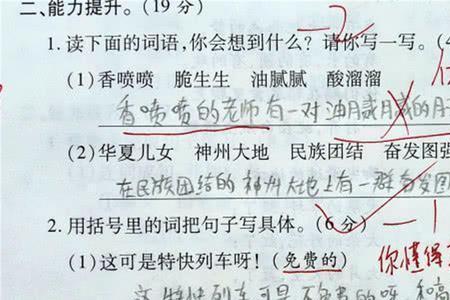 二、能力提升。(19 分)
1. 读下面的词语,你会想到什么? 请你写一写。(4
(1)香喷喷 脆生生 油腻腻 酸溜溜
香喷喷的老师有一对油腻腻的
(2)华夏儿女 神州大地 民族团结 奋发图强
在民族团结的神州大地上有一群奋发图
2. 用括号里的词把句子写具体。(6 分) -1
(1)这可是特快列车呀! (免费的) 你懂得
这特快列车可是不免费的呀